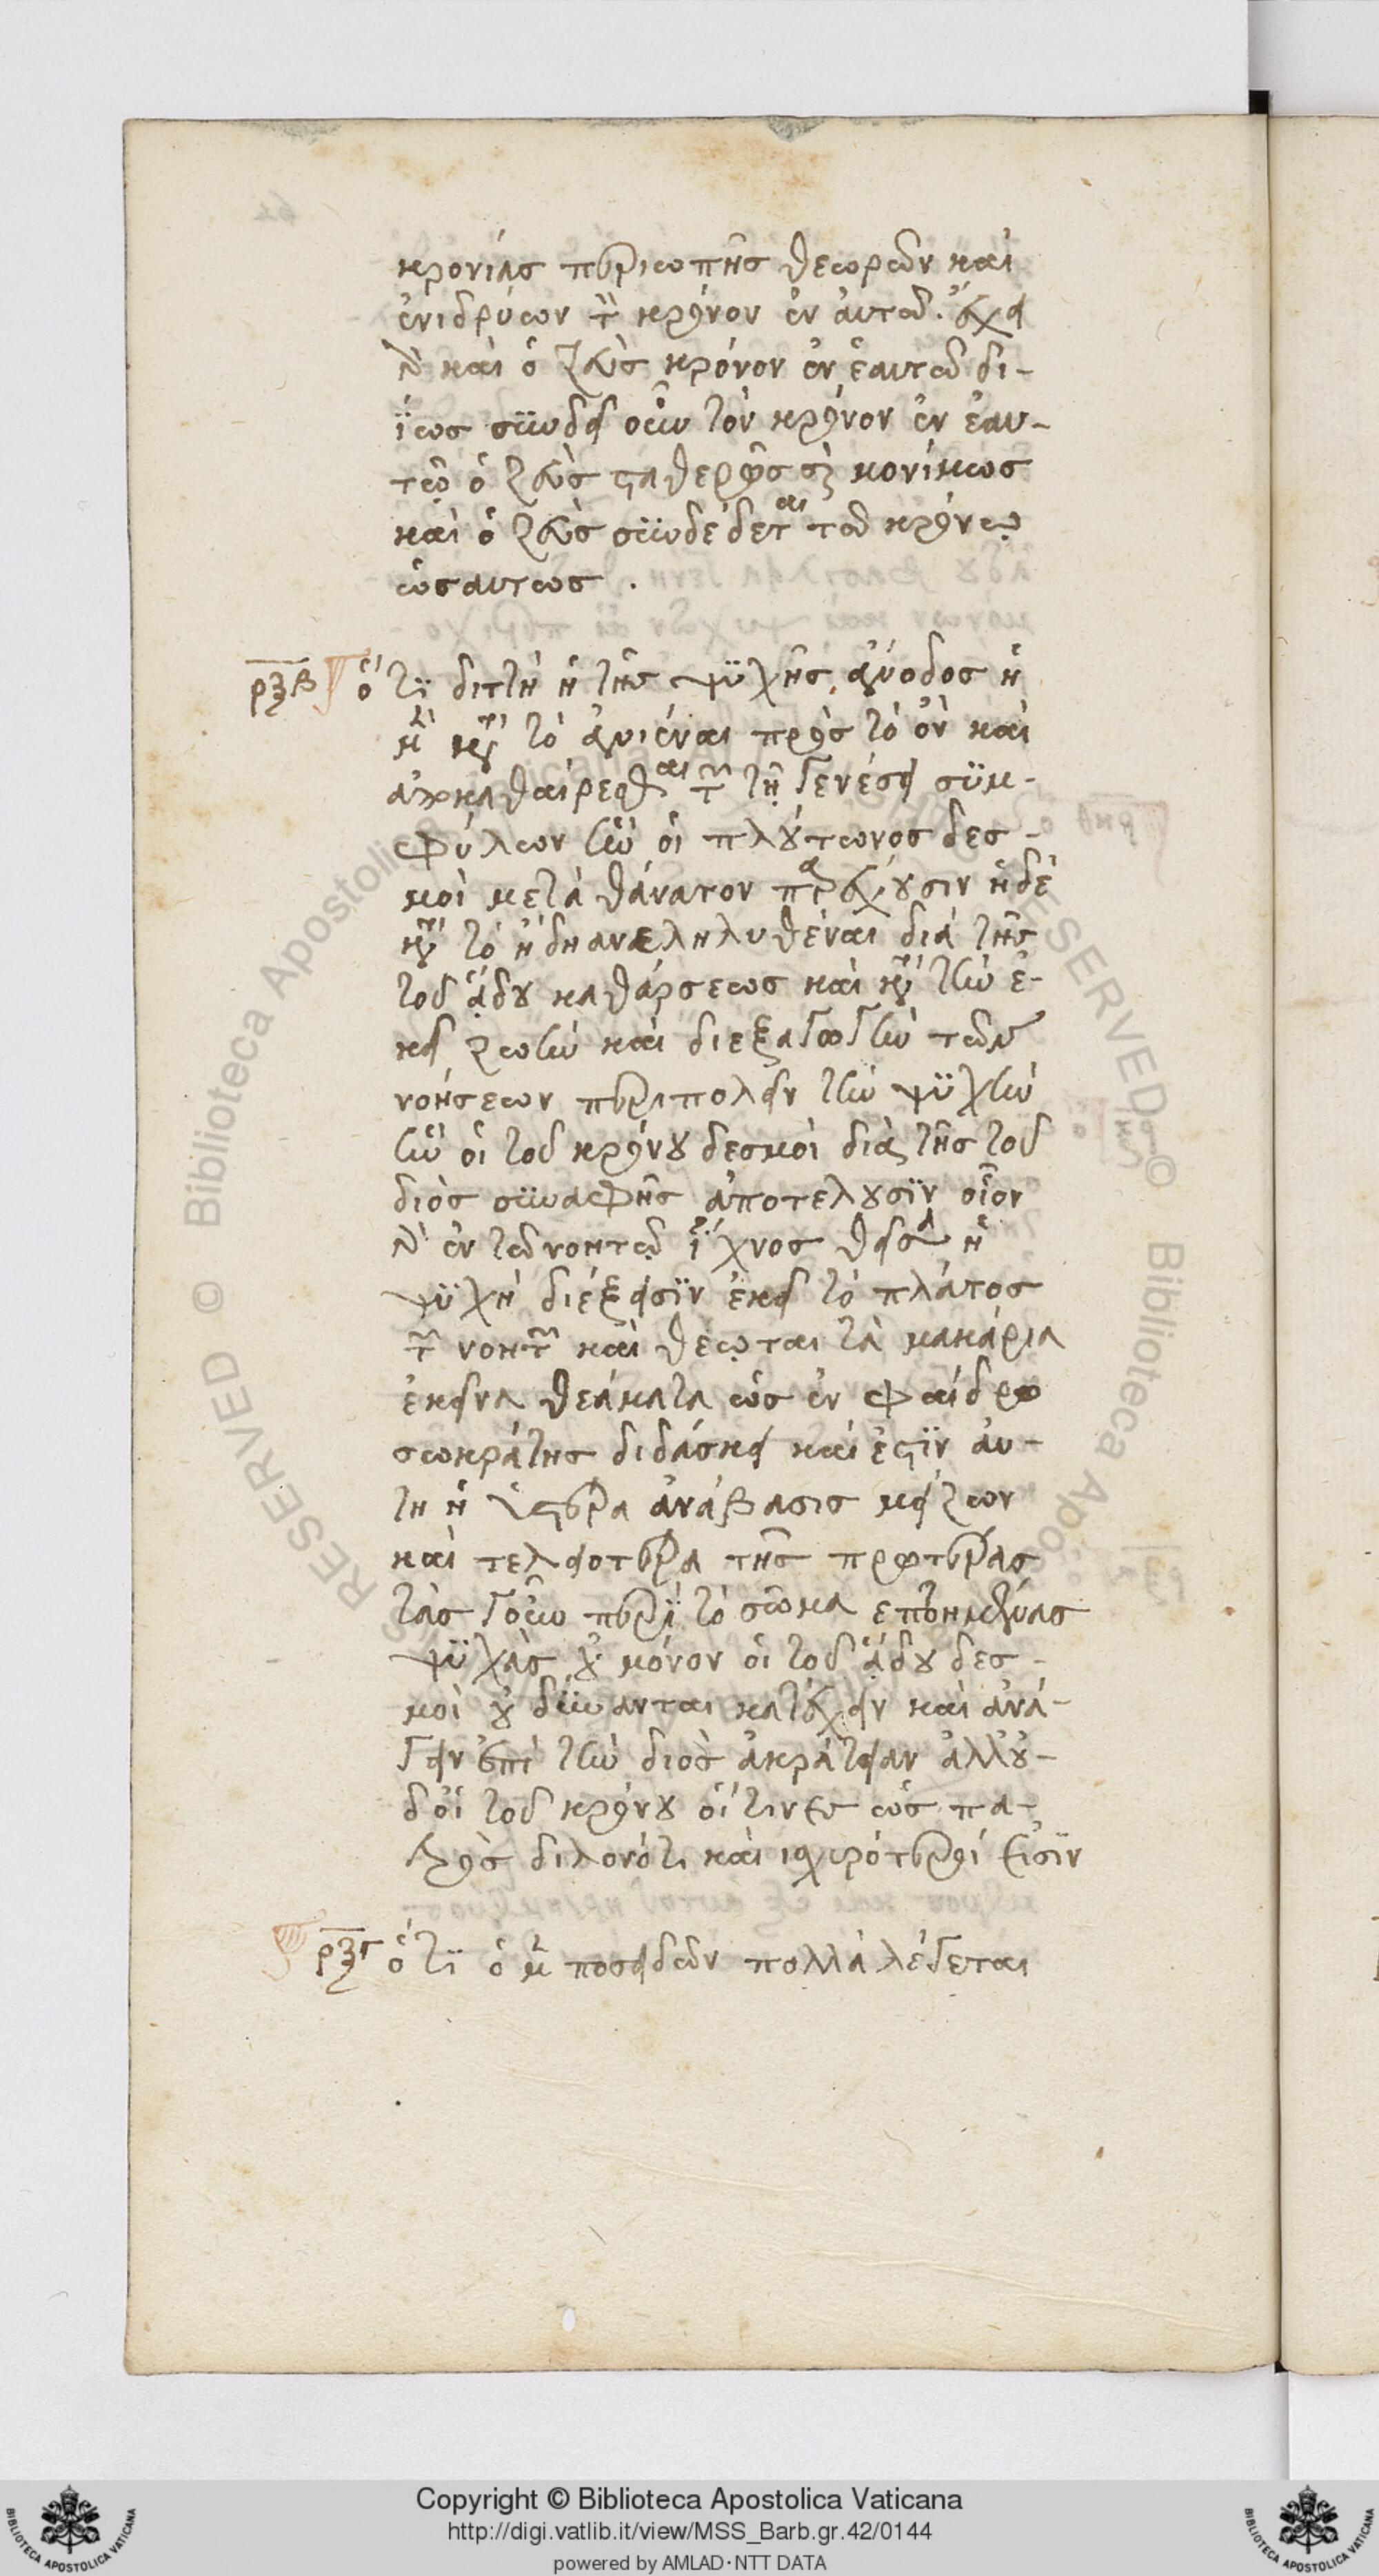 κρονίας περιωπῆς θεωρῶν καὶ
ἐνιδρύων τὸν κρόνον ἐν αὐτῶ. ἔχει
δὲ καὶ ὁ ζεὺς κρόνον ἐν ἑαυτῶ δι-
ΐως συνδεῖ οὖν τὸν κρόνον ἐν ἑαυ-
τῷ ὁ ζεὺς σταθερῶς καὶ μονίμως
καὶ ὁ ζεὺς συνδέδεται τῶ κρόνῳ
ὡσαυτως .
ρξβ ὅτι διττὴ ἡ τῆς ψυχῆς ἄνοδος ἡ
μὲν κατὰ τὸ ἀνιέναι πρὸς τὸ ὂν καὶ
ἀποκαθαίρεσθαι τῶν τῇ γενέσει συμ-
φύλων ἣν οἱ πλούτωνος δεσ-
μοὶ μετὰ θάνατον παρέχουσιν ἡ δὲ
κατὰ τὸ ἤδη ανεληλυθέναι διὰ τῆς
τοῦ ᾅδου καθάρσεως καὶ κατὰ τὴν ἐ-
κεῖ ζωὴν καὶ διεξαγωγὴν τῶν
νοήσεων περιπολεῖν τὴν ψυχὴν
ἣν οἱ τοῦ κρόνου δεσμοὶ διὰ τῆς τοῦ
διὸς συναφῆς ἀποτελουσιν οἷον
δὲ ἐν τῶ νοητῷ ἴχνος θεῖσα ἡ
ψυχὴ διέξεισιν ἐκεῖ τὸ πλάτος
τῶν νοητῶν καὶ θεᾶται τὰ μακάρια
ἐκεῖνα θεάματα ὡς ἐν φαίδρω
σωκράτης διδάσκει καὶ ἐστιν ἀυ-
τη ἡ ὑστερα ἀνάβασις μείζων
καὶ τελειοτερα τῆς προτερας
τὰς γοῦν περὶ τὸ σῶμα επτοημένας
ψυχὰς οὐ μόνον οἱ τοῦ ᾅδου δεσ-
μοὶ οὐ δύνανται κατέχειν καὶ ἀνά-
γειν ἐπὶ τὴν διὸς ἀκράτειαν ἀλλ' οὐ-
δ' οἱ τοῦ κρόνου οἵτινες ὡς πα-
τρὸς δηλονότι καὶ ισχυρότεροί εἰσιν
ρξγ ὅτι ὁ μὲν ποσειδῶν πολλὰ λέγεται
Copyright © Biblioteca Apostolica Vaticana
http://digi.vatlib.it/view/MSS_Barb.gr.42/0144
powered by AMLAD·NTT DATA